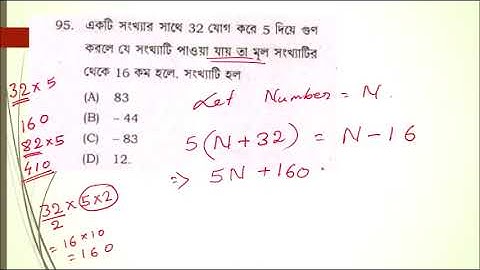 95. একটি সংখ্যার সাথে 32 যোগ করে 5 দিয়ে গুণ
করলে যে সংখ্যাটি পাওয়া যায় তা মূল সংখ্যাটির
থেকে 16 কম হলে, সংখ্যাটি হল
(A) 83
(B) – 44
(C) – 83
(D) 12.
32 x 5
160
82 x 5
410
32 x 5 x 2
2
= 16 x 10
= 160
Let Number = N.
5(N+32) = N-16
⇒ 5N + 160